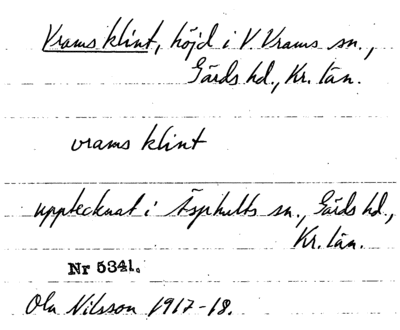 Vrams klint, höjd i V. Vrams sn.,
Gärds hd., Kr. län.
vrams klint
upptecknat i Äsphults sn., Gärds hd.,
Kr. län.
Nr 5341.
Ola Nilsson 1917-18.